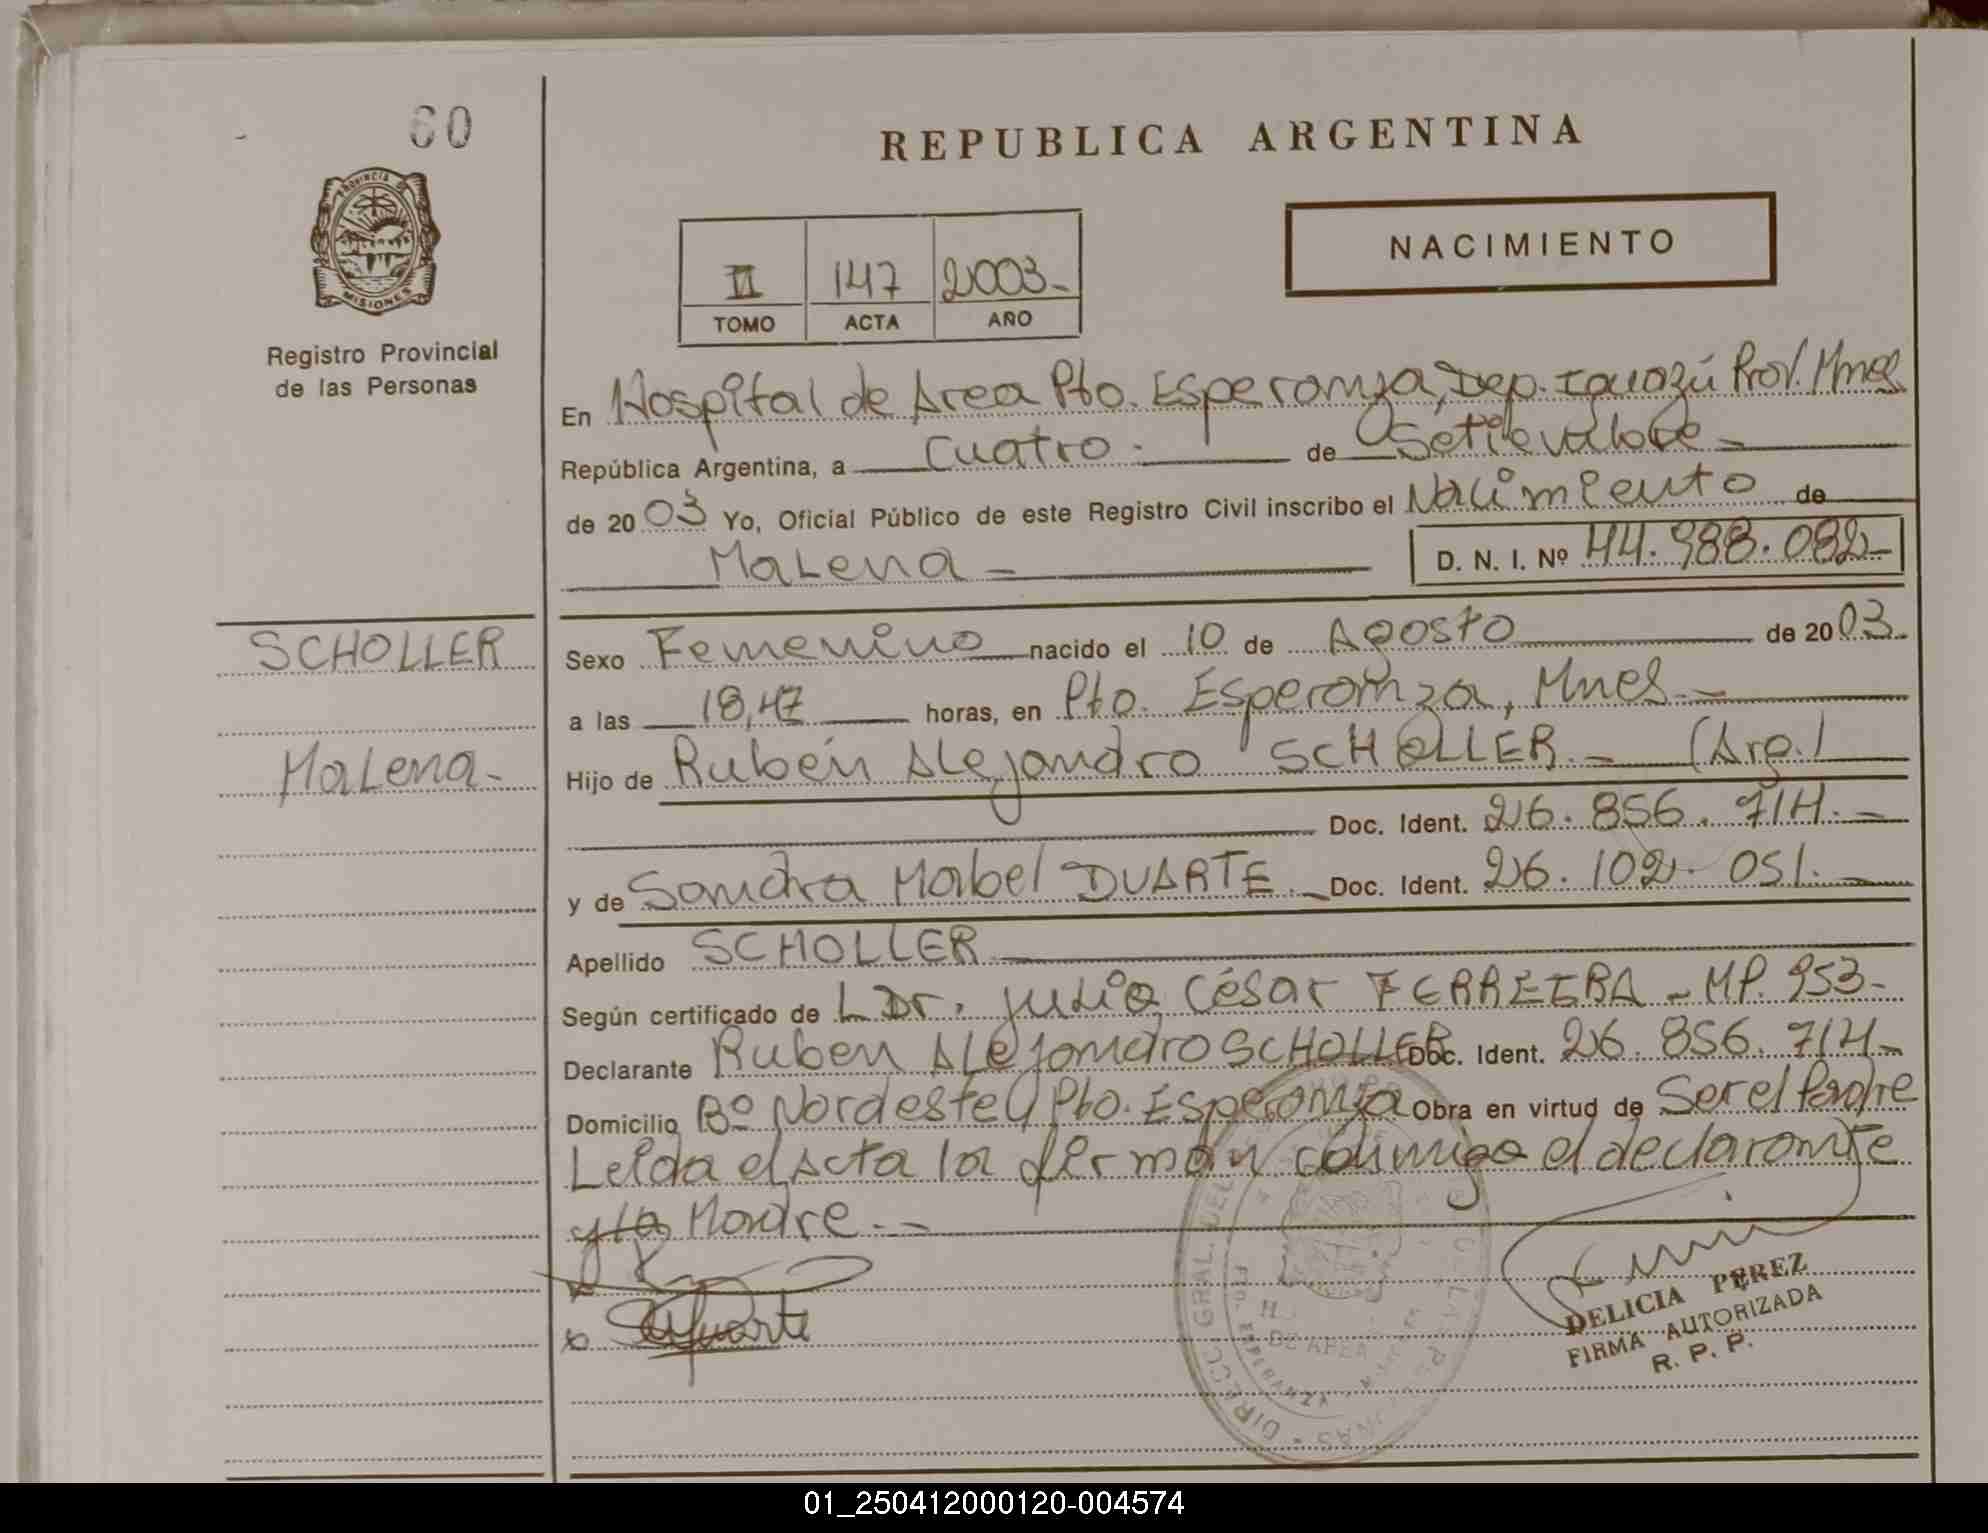 60
REPUBLICA ARGENTINA
PROVINCIA DE
MISIONES
Registro Provincial
de las Personas
II 147 2003-
TOMO ACTA AÑO
NACIMIENTO
En Hospital de Area Pto. Esperanza, Dep. Iguazú Prov. Mnes
República Argentina, a Cuatro.- de Setiembre-
de 2003 Yo, Oficial Público de este Registro Civil inscribo el Nacimiento de
Malena- D. N. I. Nº 44.988.082-
SCHOLLER
Malena-
Sexo Femenino nacido el 10 de Agosto de 2003-
a las 18,47 horas, en Pto. Esperanza, Mnes.-
Hijo de Rubén Alejandro SCHOLLER.- (Arg.)
Doc. Ident. 26.856.714.-
y de Sandra Mabel DUARTE.- Doc. Ident. 26.102.051.-
Apellido SCHOLLER
Según certificado de Dr. Julio César FERREIRA - MP. 953-
Declarante Ruben Alejandro SCHOLLER Doc. Ident. 26.856.714-
Domicilio Bº Nordeste Pto. Esperanza Obra en virtud de Ser el Padre
Leída el Acta la firman conmigo el declarante
y la Madre.-
SDuarte
DELICIA PEREZ
FIRMA AUTORIZADA
R. P. P.
DIRECC. GRAL. DEL
DE AREA
ESPERANZA
01_250412000120-004574